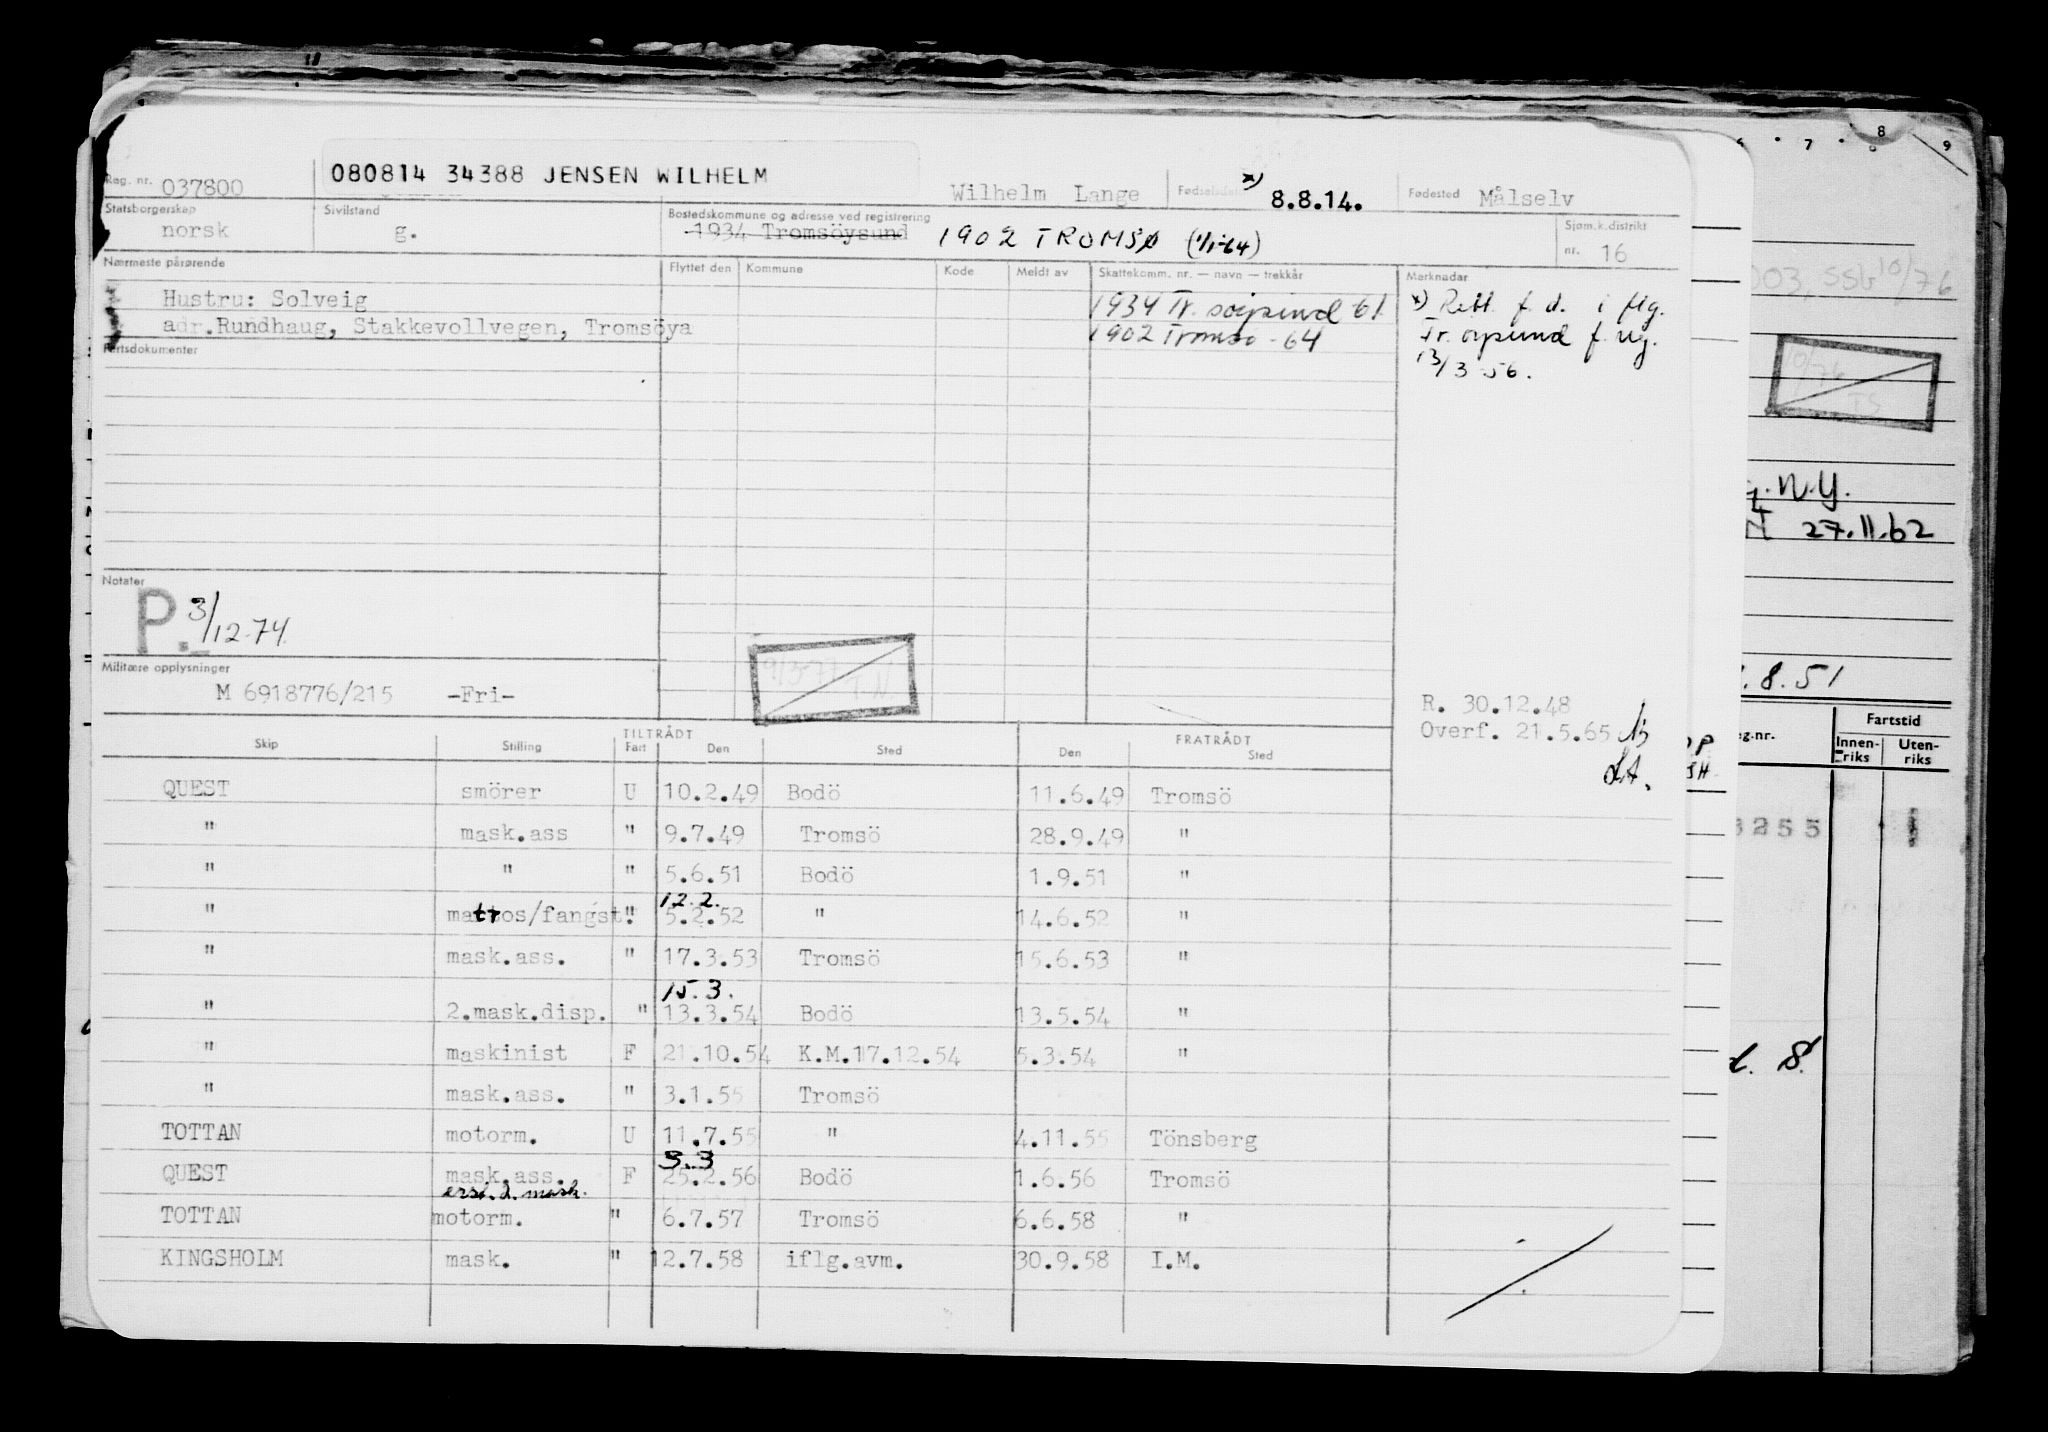 080814 34388 JENSEN WILHELM
Reg. nr. 037800 Wilhelm Lange Fødselsdat x) 8.8.14. Fødested Målselv
Statsborgerskap norsk Sivilstand g. Bostedskommune og adresse ved registrering 1934 Tromsöysund 1902 TROMSØ (1/1-64) Sjøm.k.distrikt nr. 16
Nærmeste pårørende Flyttet den Kommune Kode Meldt av Skattekomm. nr. — navn — trekkår Merknader
Hustru: Solveig 1934 Tr. söysund 61 x) Rett f. d. i flg.
adr.Rundhaug, Stakkevollvegen, Tromsöya 1902 Tromsø - 64 Tr. øysund f. reg.
Fartsdokumenter 13/3 56.
Notater
P. 3/12-74
Militære opplysninger
M 6918776/215 -Fri-
9/3-77 T.N.
R. 30.12.48
Overf. 21.5.65
TILTRÅDT FRATRÅDT
Skip Stilling Fart Den Sted Den Sted
QUEST smörer U 10.2.49 Bodö 11.6.49 Tromsö
" mask.ass " 9.7.49 Tromsö 28.9.49 "
" " " 5.6.51 Bodö 1.9.51 "
12.2.
" mattos/fangst. " 5.2.52 " 14.6.52 "
" mask.ass. " 17.3.53 Tromsö 15.6.53 "
15.3.
" 2.mask.disp. " 13.3.54 Bodö 13.5.54 "
" maskinist F 21.10.54 K.M.17.12.54 5.3.54 "
" mask.ass. " 3.1.55 Tromsö
TOTTAN motorm. U 11.7.55 " 4.11.55 Tönsberg
3.3
QUEST mask.ass. F 25.2.56 Bodö 1.6.56 Tromsö
erst. 2. mask.
TOTTAN motorm. " 6.7.57 Tromsö 6.6.58 "
KINGSHOLM mask. " 12.7.58 iflg.avm. 30.9.58 I.M.
7 8 8 9
003, SSB 10/76
10/76 TS
N.Y.
27.11.62
.8.51
eg.nr. Fartstid
Innen-riks Uten-riks
3255